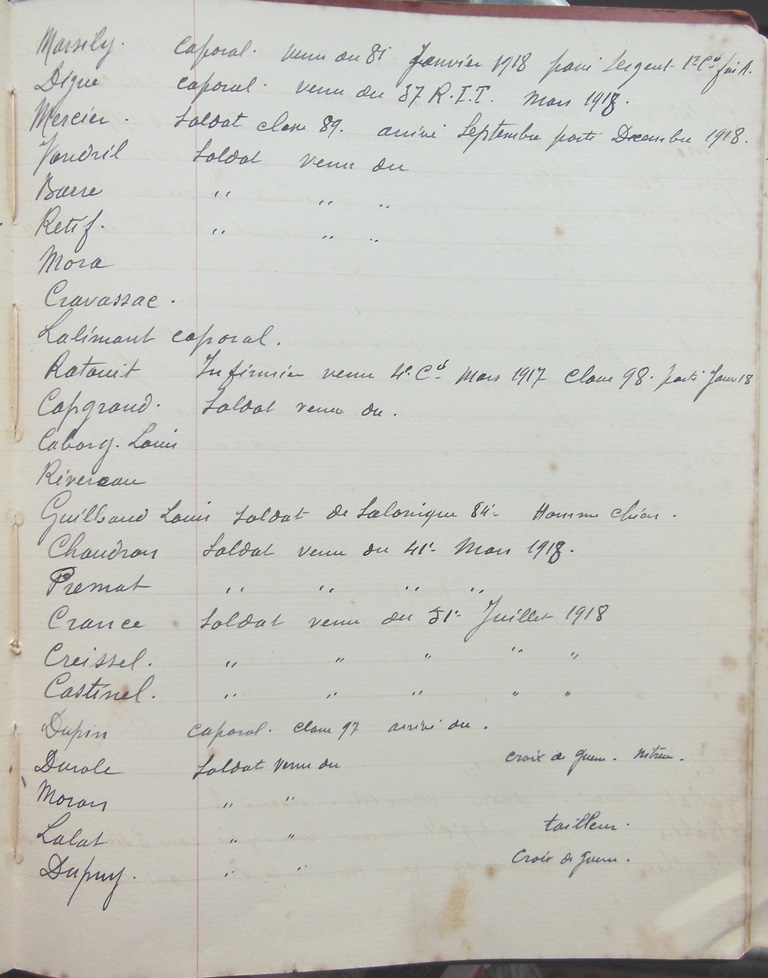 Marsily. caporal. venu du 81e Janvier 1918 parti Sergent 1re Cie
Digue caporal. venu du 37 R.I.T. Mars 1918.
Mercier. Soldat classe 89. arrivé Septembre parti Decembre 1918.
Vendril Soldat venu du
Barre " " "
Retif. " " "
Mora
Cravassac.
Lalimant caporal.
Ratouit Infirmier venu 4e Cie Mars 1917 classe 98. parti Janv 18
Capgrand. Soldat venu du.
Caborg. Louis
Révereau
Guilbaud Louis Soldat de Salonique 84e Homme chien.
Chaudron Soldat venu du 41e Mars 1918.
Premat " " " "
Crance Soldat venu du 51e Juillet 1918
Creissel. " " " " "
Castinel. " " " " "
Dupin caporal. classe 97 arrivé du.
Durole Soldat venu du croix de guerre.
Moran " "
Lalat " " tailleur.
Dupuy. " " Croix de guerre.